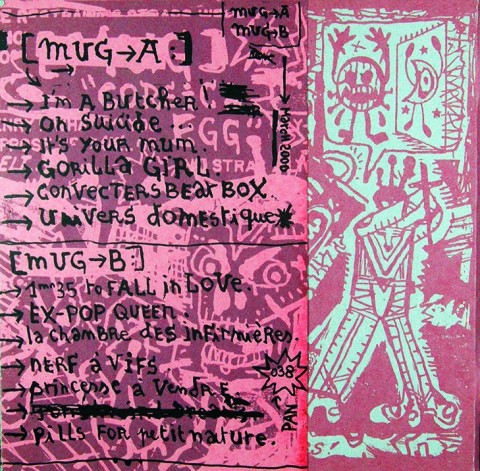 MUG→A
MUG→B
[MUG→A:]
→ I'm A ButcHer!
→ oh Suicide...
→ It's YouR mum.
→ GORILLA GIRL.
→ CONVECTERS BEAT BOX
→ UNIVERS domestique
March 2000
[MUG→B:]
→ 1mn35 to FALL in LOVE.
→ EX-POP QUEEN.
→ la chambre DES INFIRMIÈRES.
→ NERF à VIFS.
→ princesse à VENDRE
→ PILLS FOR petit nature.
PAN
038